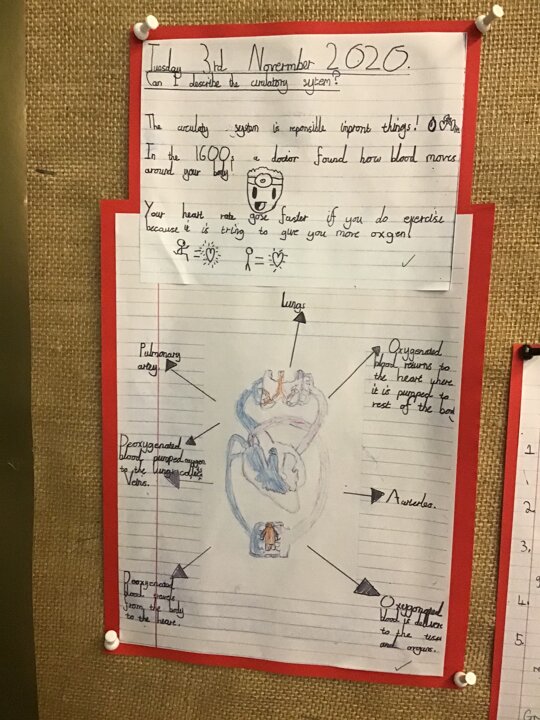 Tuesday 3rd November 2020.
Can I describe the circulatory system?
The circulaty system is reponsible inpront things!
In the 1600s a doctor found how blood moves
around your body
Your heart rate gose faster if you do exercise
because it is tring to give you more oxgen!
Lungs
Pulmonary
artey.
Oxygenated
blood returns to
the heart where
it is pumped to
rest of the body
Deoxygenated
blood pumped oxygen
to the lungs collects
Veins.
Arteries.
Deoxygenated
blood travels
from the body
to the heart.
Oxygenated
blood is deliver
to the tissu
and organs.
1
2
3.
4.
5.